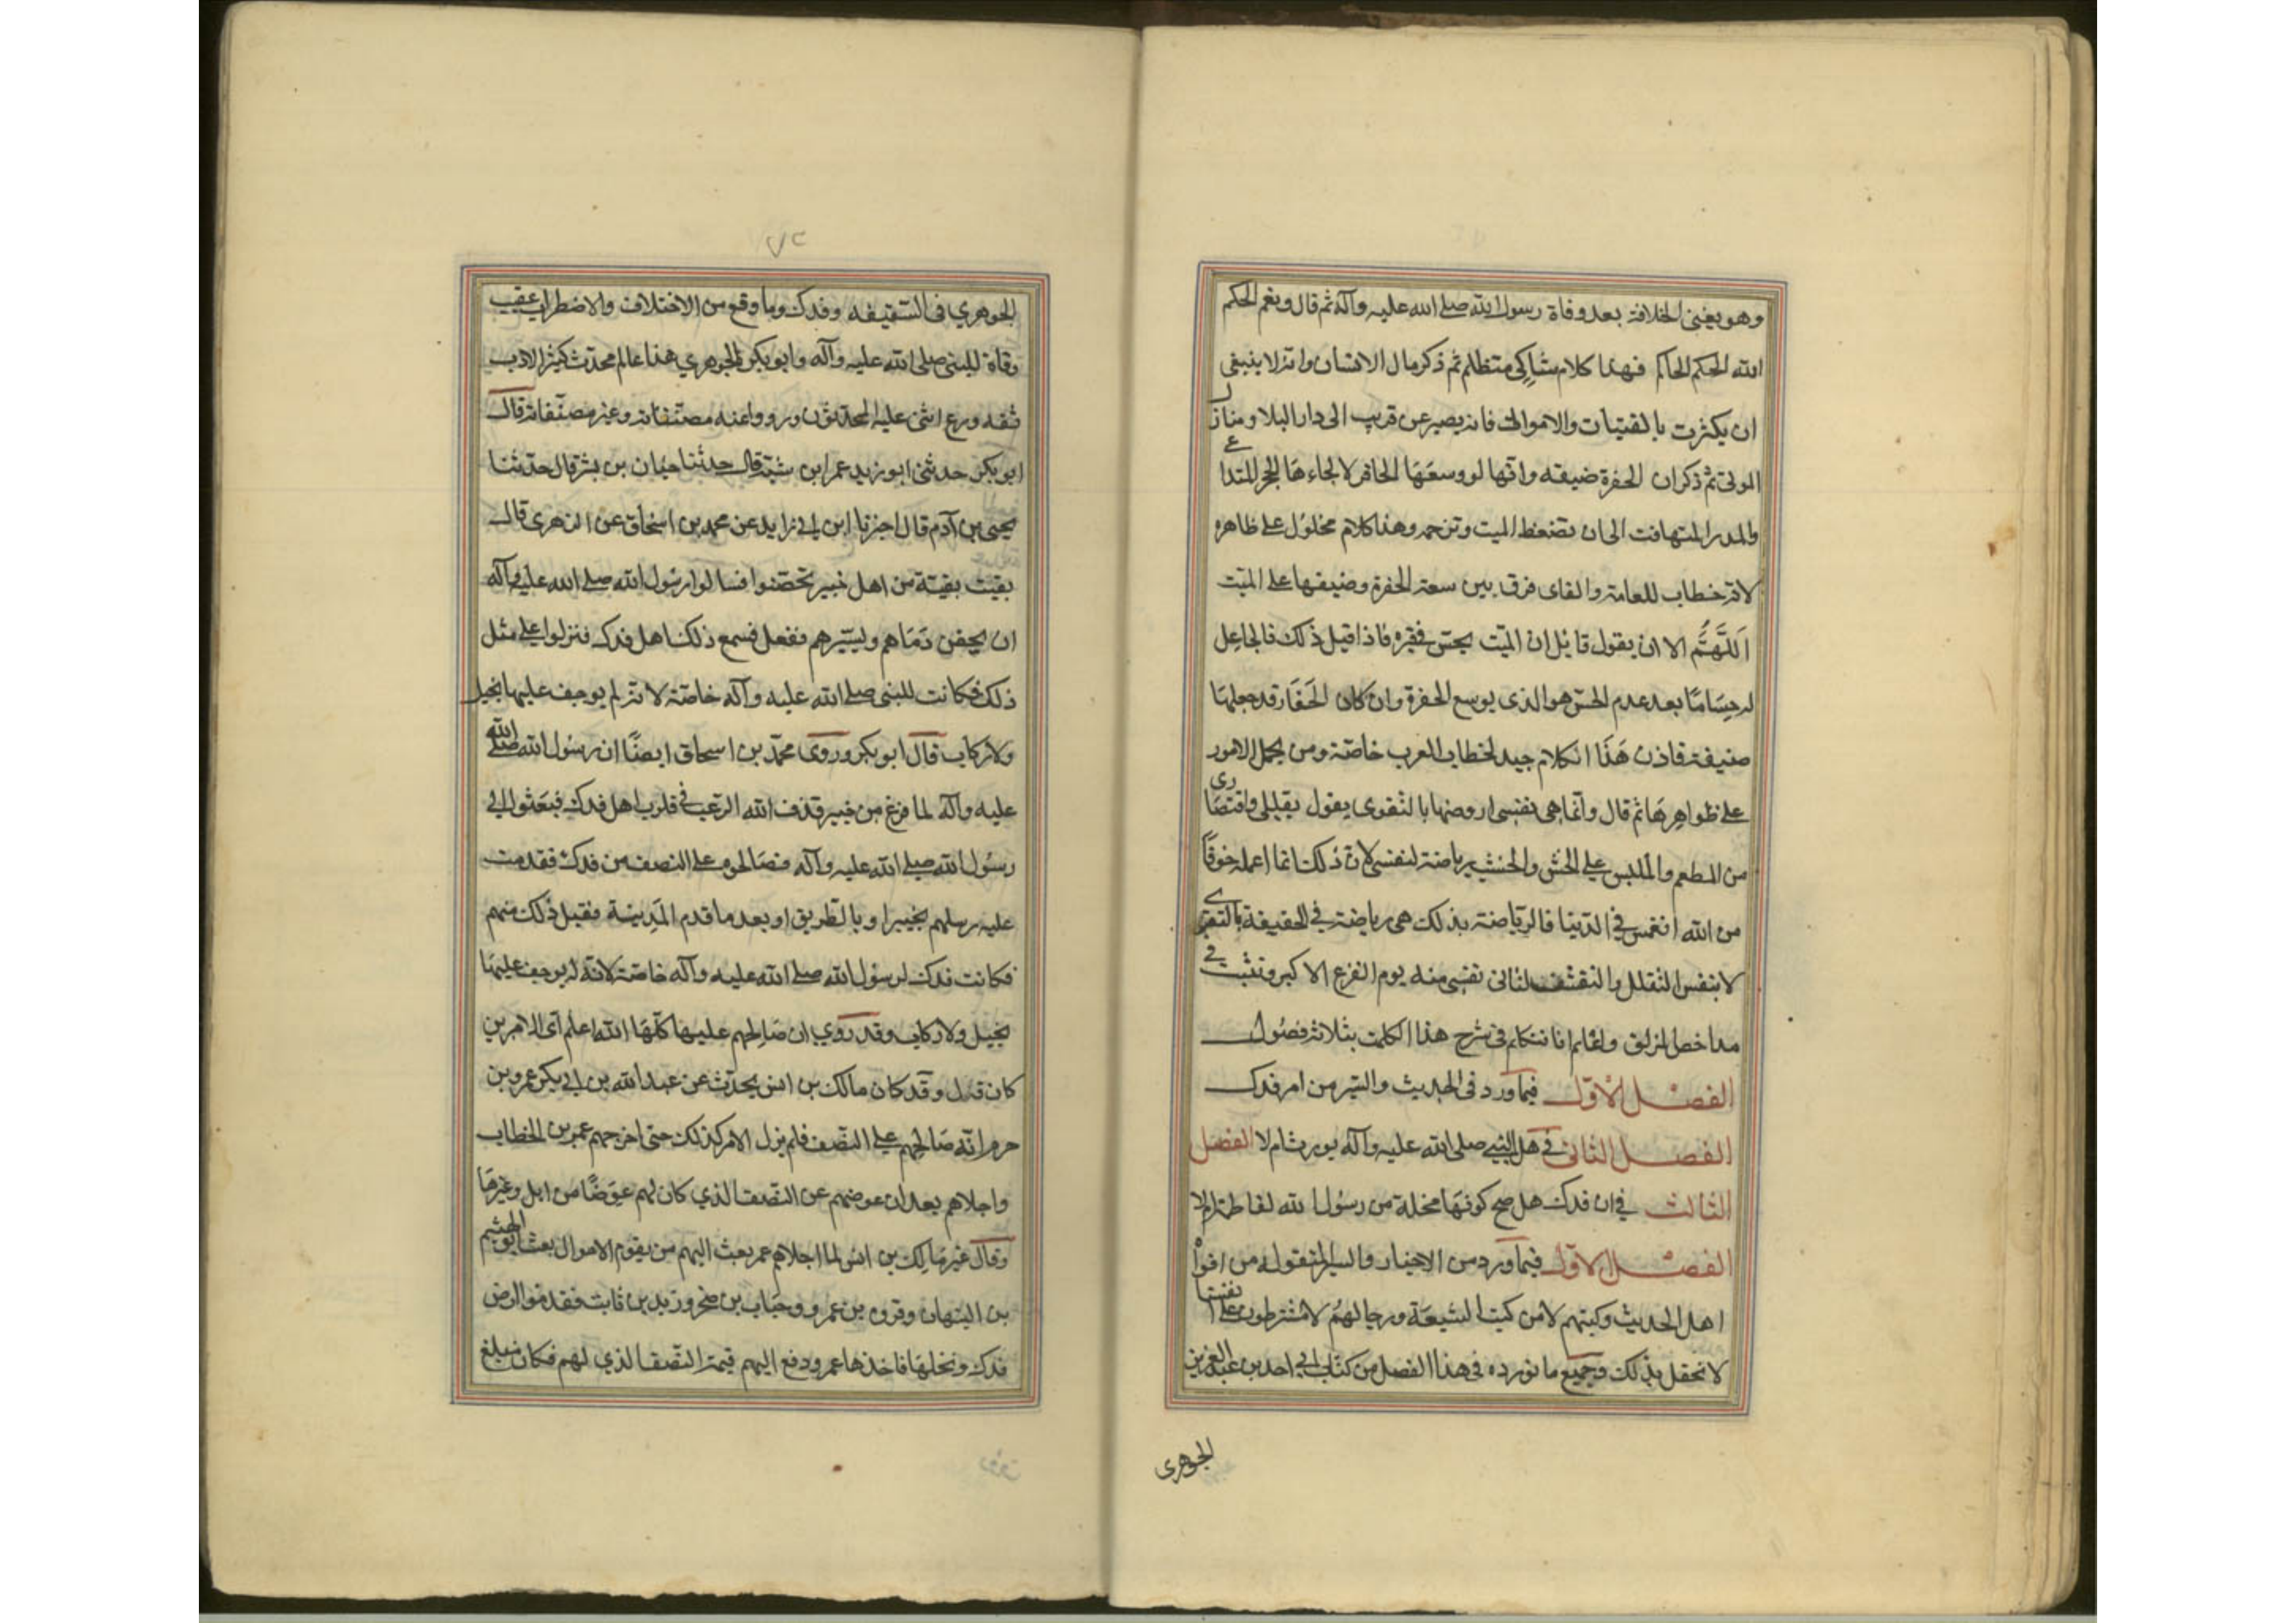 وهو يعنى الخلافة بعد وفاة رسول الله صلى الله عليه وآله ثم قال ونعم الحكم
الله الحكم الحاكم فهذا كلام شاكى متظلم ثم ذكر مال الانسان وانه لا ينبغى
ان يكترث بالقينات والاموال فانه يصير عن قريب الى دار البلا ومنازل
الموتى ثم ذكر ان الحفرة ضيقه وانها لو وسعها الحافر لالجاءها الحجر المتداعى
والمدر المتهافت الى ان تضغط الميت وتزحمه وهذا كلام محمول على ظاهره
لانه خطاب للعامة والفاى فرق بين سعة الحفرة وضيقها على الميت
اللهم الا ان يقول قايل ان الميت يحس فى قبره فاذا قيل ذلك فالجاعل
له حساسا بعد عدم الحس هو الذى يوسع الحفرة وان كان الحفار قد جعلها
ضيقة فاذن هذا الكلام جيد لخطاب العرب خاصة ومن يحمل الامور
على ظواهرها ثم قال وانما هى نفسى اروضها بالتقوى يقول تقللى واقتصارى
من المطعم والملبس على الخش والخشب رياضة لنفسى لان ذلك انما اعمله خوفا
من الله انغمس فى الدنيا فالرياضة بذلك هى رياضة فى الحقيقة بالتقوى
لا بنفس التقلل والتقشف لتاتى نفسى منه يوم الفزع الاكبر وتثبت فى
مداحض المزلق واعلم انا نتكلم فى شرح هذا الكلمت بثلاثة فصول
الفصل الاول فيما ورد فى الحديث والسير من امر فدك
الفصل الثانى فى هل النبى صلى الله عليه وآله يورث ام لا الفصل
الثالث فى ان فدك هل صح كونها نحلة من رسول الله لفاطمة ام لا
الفصل الاول فيما ورد من الاخبار والسير المنقوله من افواه
اهل الحديث وكتبهم لا من كتب الشيعة ورجالهم لا مشترطون على انفسنا
لا نحفل بذلك وجميع ما نورده فى هذا الفصل من كتاب ابى احمد بن عبد العزيز
الجوهرى
الجوهري فى السقيفه وفدك وما وقع من الاختلاف والاضطراب عقيب
وفاة النبى صلى الله عليه وآله وابو بكر الجوهري هذا عالم محدث كثير الادب
ثقه ورع اثنى عليه المحدثون ورووا عنه مصنفاته وغير مصنفاته قال
ابو بكر حدثنى ابو زيد عمر ابن شبة قال حدثنا حيان بن بشر قال حدثنا
يحيى بن آدم قال اخبرنا ابن ابى زايد عن محمد بن اسحاق عن الزهرى قال
بقيت بقية من اهل خيبر تحصنوا فسالوا رسول الله صلى الله عليه وآله
ان يحقن دماهم ويسيرهم ففعل فسمع ذلك اهل فدك فنزلوا على مثل
ذلك فكانت للنبى صلى الله عليه وآله خاصة لانه لم يوجف عليها بخيل
ولا ركاب قال ابو بكر وروى محمد بن اسحاق ايضا ان رسول الله صلى الله
عليه وآله لما فرغ من خيبر قذف الله الرعب فى قلوب اهل فدك فبعثوا الى
رسول الله صلى الله عليه وآله فصالحوه على النصف من فدك فقدمت
عليه رسلهم بخيبر او بالطريق او بعد ما قدم المدينة فقبل ذلك منهم
فكانت فدك لرسول الله صلى الله عليه وآله خاصة لانه لم يوجف عليها
بخيل ولا ركاب وقد روي ان صالحهم عليها كلها الله اعلم اى الامرين
كان قال وقد كان مالك بن انس يحدث عن عبد الله بن ابى بكر عمرو بن
حرم انه صالحهم على النصف فلم يزل الامر كذلك حتى اخرجهم عمر بن الخطاب
واجلاهم بعد ان عوضهم عن النصف الذي كان لهم عوضا من ابل وغيرها
وقال غير مالك بن انس لما اجلاهم عمر بعث اليهم من يقوم الاموال بعث ابو الهيثم
بن التيهان وفروة بن عمرو وحباب بن صخر وزيد بن ثابت فقدموا ارض
فدك ونخلها فاخذها عمر ودفع اليهم قيمة النصف الذي لهم فكان مبلغ